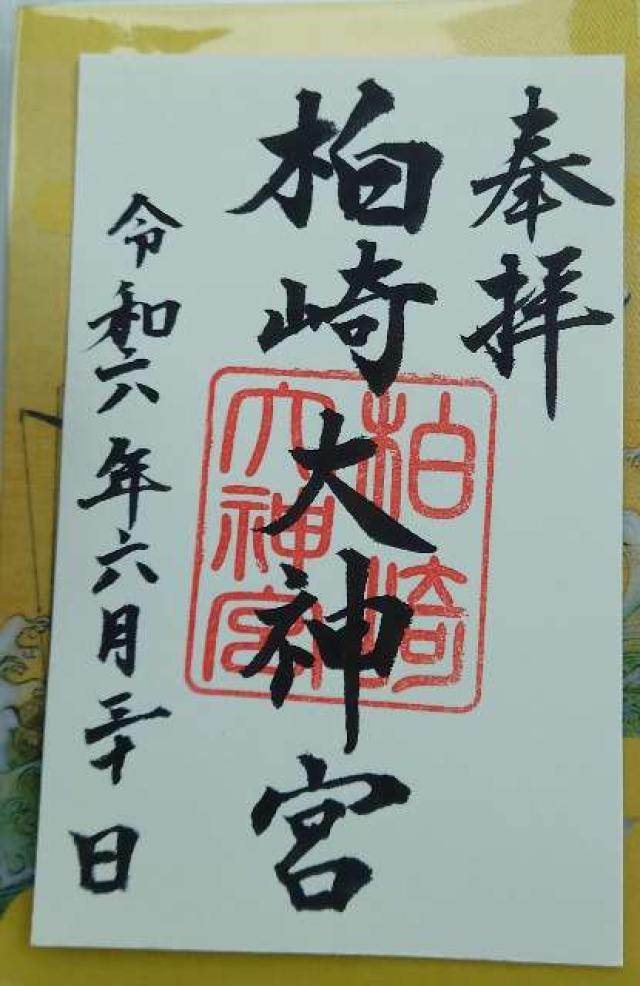 奉拝
柏崎大神宮
柏崎大神宮
令和六年六月三十日